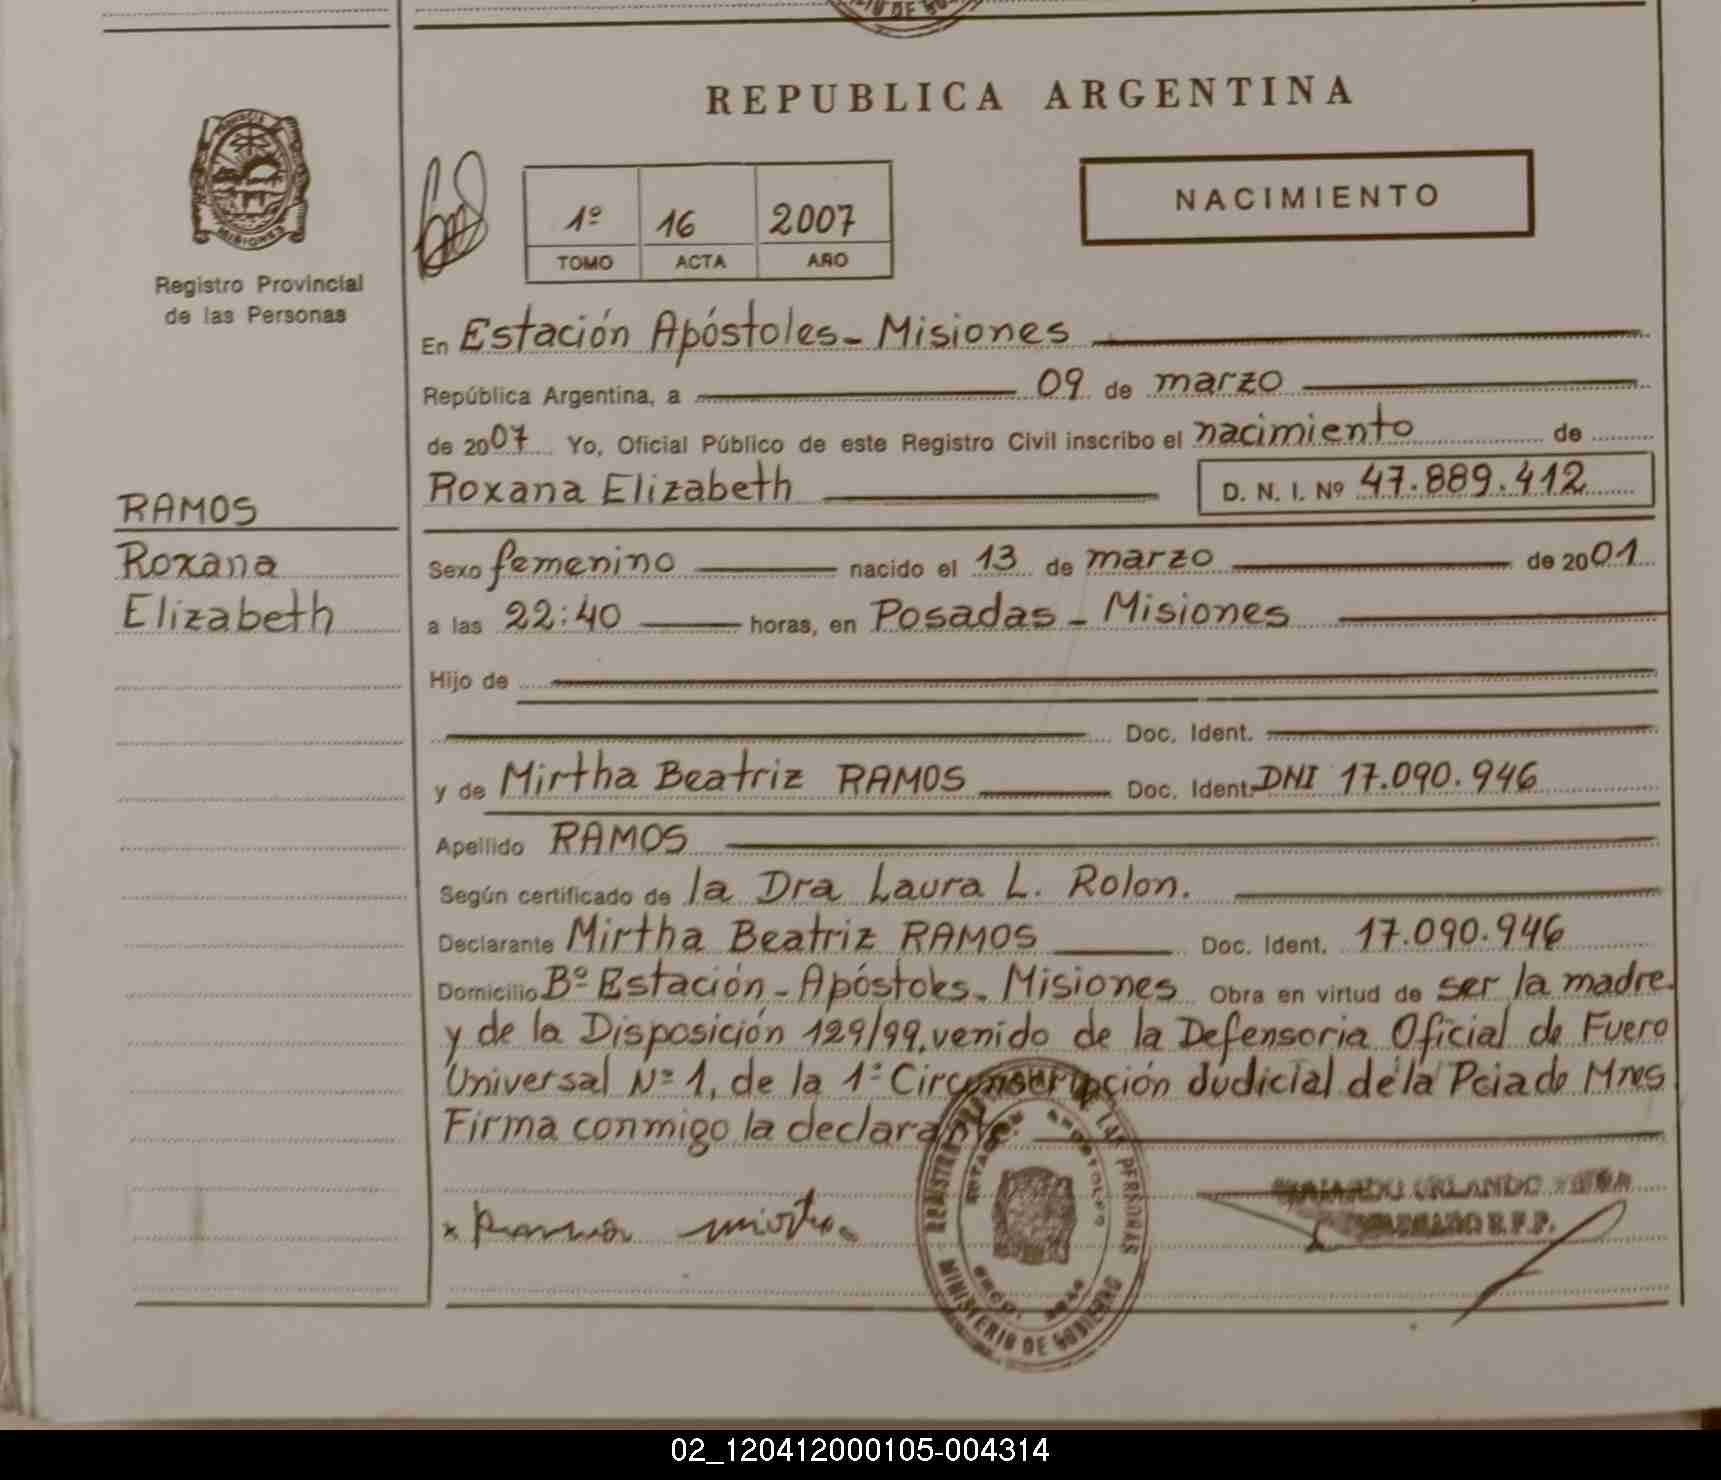 REPUBLICA ARGENTINA
MISIONES
Registro Provincial
de las Personas
1º 16 2007
TOMO ACTA AÑO
NACIMIENTO
En Estación Apóstoles - Misiones
República Argentina, a 09 de marzo
de 2007 Yo, Oficial Público de este Registro Civil inscribo el nacimiento de
Roxana Elizabeth D. N. I. Nº 47.889.412
RAMOS
Roxana
Elizabeth
Sexo femenino nacido el 13 de marzo de 2001
a las 22:40 horas, en Posadas - Misiones
Hijo de
Doc. Ident.
y de Mirtha Beatriz RAMOS Doc. Ident. DNI 17.090.946
Apellido RAMOS
Según certificado de la Dra Laura L. Rolon.
Declarante Mirtha Beatriz RAMOS Doc. Ident. 17.090.946
Domicilio Bº Estación - Apóstoles - Misiones Obra en virtud de ser la madre
y de la Disposición 129/99, venido de la Defensoria Oficial de Fuero
Universal Nº 1, de la 1ª Circunscripción Judicial de la Pcia de Mnes
Firma conmigo la declarante.
DE LAS PERSONAS
MINISTERIO DE GOBIERNO
ORLANDO
R.P.P.
02_120412000105-004314